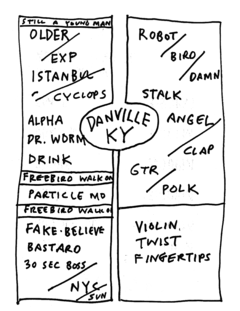 STILL A YOUNG MAN
OLDER
EXP
ISTANBUL
CYCLOPS
ALPHA
DR. WORM
DRINK
FREEBIRD WALK ON
PARTICLE MO
FREEBIRD WALK ON
FAKE-BELIEVE
BASTARD
30 SEC BOSS
NYC
SUN
DANVILLE
KY
ROBOT
BIRD
DAMN
STALK
ANGEL
CLAP
GTR
POLK
VIOLIN,
TWIST
FINGERTIPS